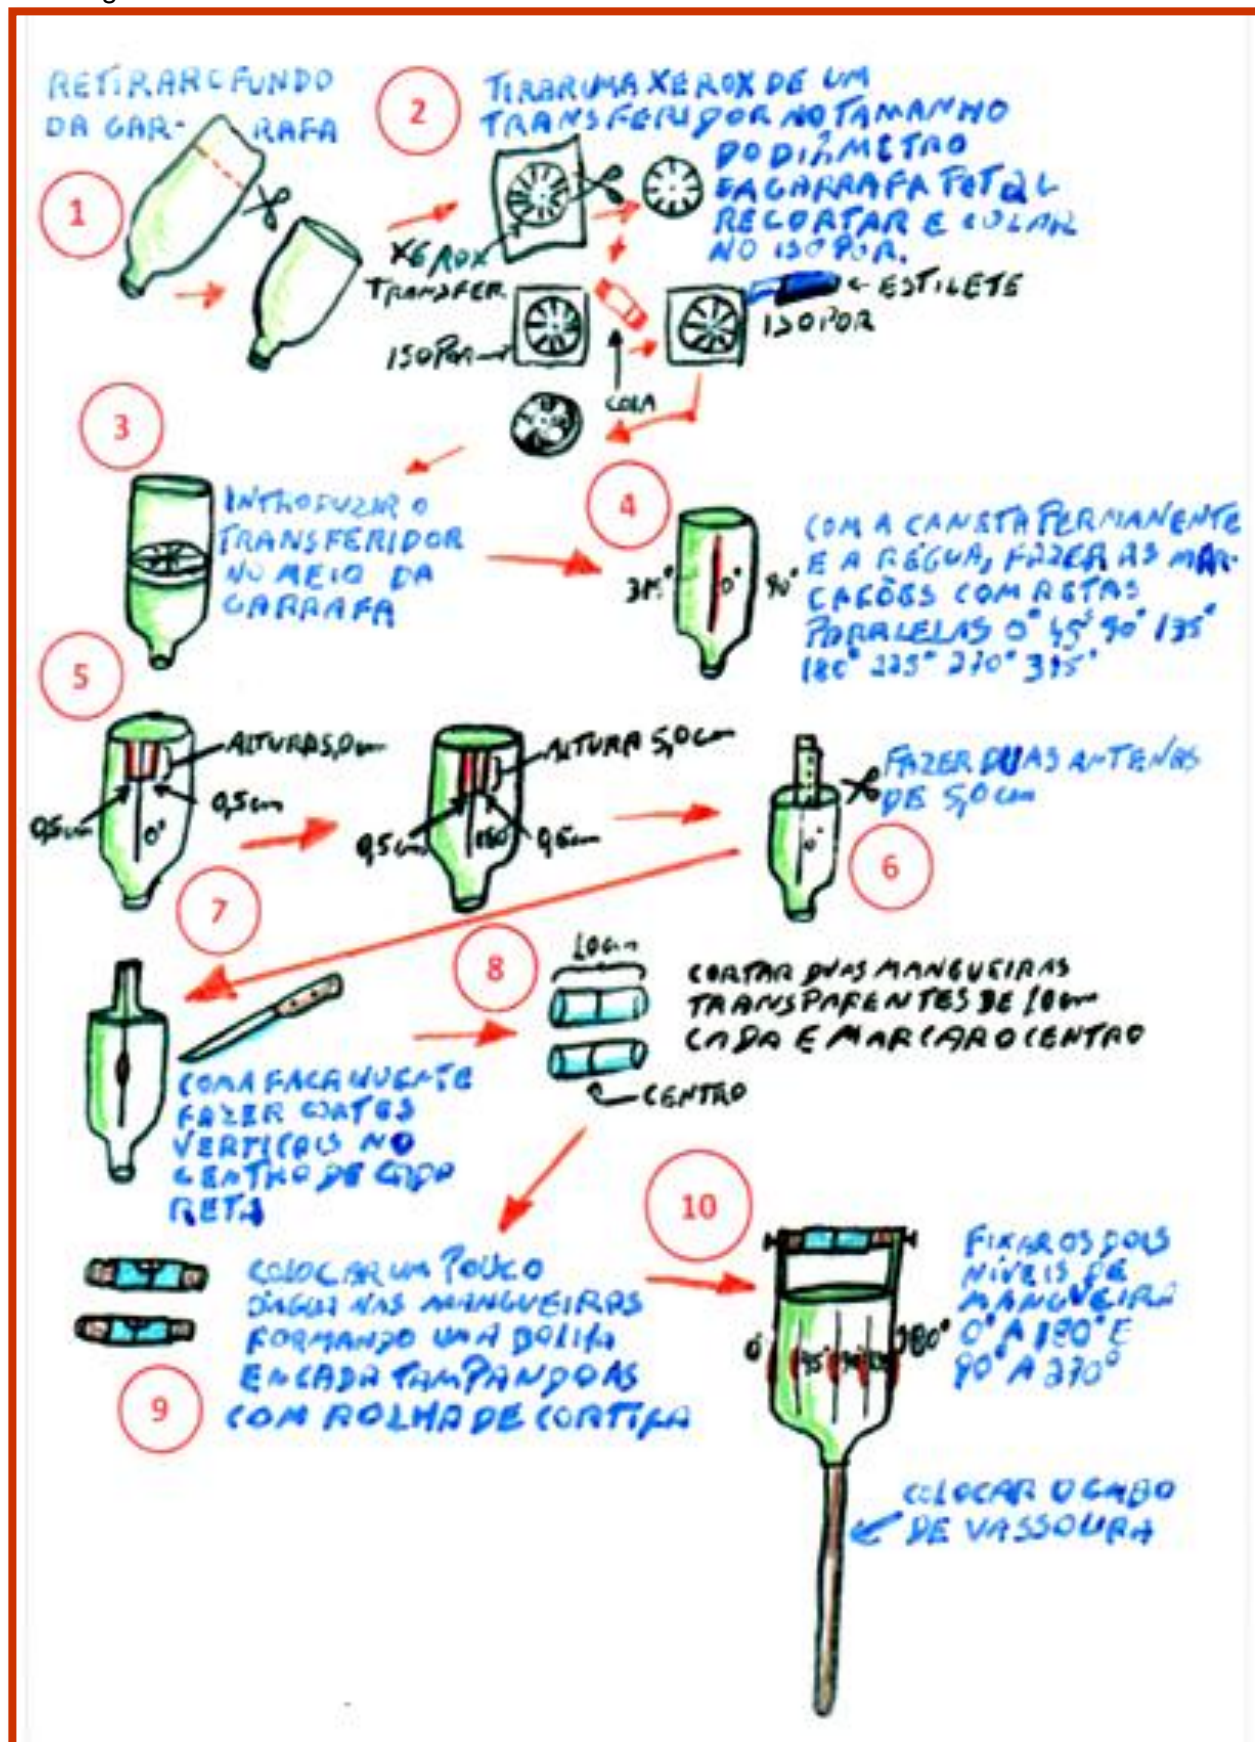 RETIRAR O FUNDO
DA GAR- RAFA
1
2
TIRAR UMA XEROX DE UM
TRANSFERIDOR NO TAMANHO
DO DIÂMETRO
DA GARRAFA
RECORTAR E COLAR
NO ISOPOR.
XEROX
TRANSFER
← ESTILETE
ISOPOR
ISOPOR
COLA
3
INTRODUZIR O
TRANSFERIDOR
NO MEIO DA
GARRAFA
4
315° 0° 90°
COM A CANETA PERMANENTE
E A RÉGUA, FAZER AS MAR-
CAÇÕES COM RETAS
PARALELAS 0° 45° 90° 135°
180° 225° 270° 315°
5
ALTURA 5,0 cm
0,5 cm
0,5 cm
0°
ALTURA 5,0 cm
0,5 cm
180°
0,5 cm
FAZER DUAS ANTENAS
DE 5,0 cm
0°
6
7
COM A FACA QUENTE
FAZER CORTES
VERTICAIS NO
CENTRO DE CADA
RETA
8
10 cm
CORTAR DUAS MANGUEIRAS
TRANSPARENTES DE 10 cm
CADA E MARCAR O CENTRO
CENTRO
COLOCAR UM POUCO
D'ÁGUA NAS MANGUEIRAS
FORMANDO UMA BOLHA
EM CADA TAMPANDO AS
COM ROLHA DE CORTIÇA
9
10
FIXAR OS DOIS
NÍVEIS DE
MANGUEIRA
0° A 180° E
90° A 270°
0° 45° 90° 135 180°
COLOCAR O CABO
DE VASSOURA